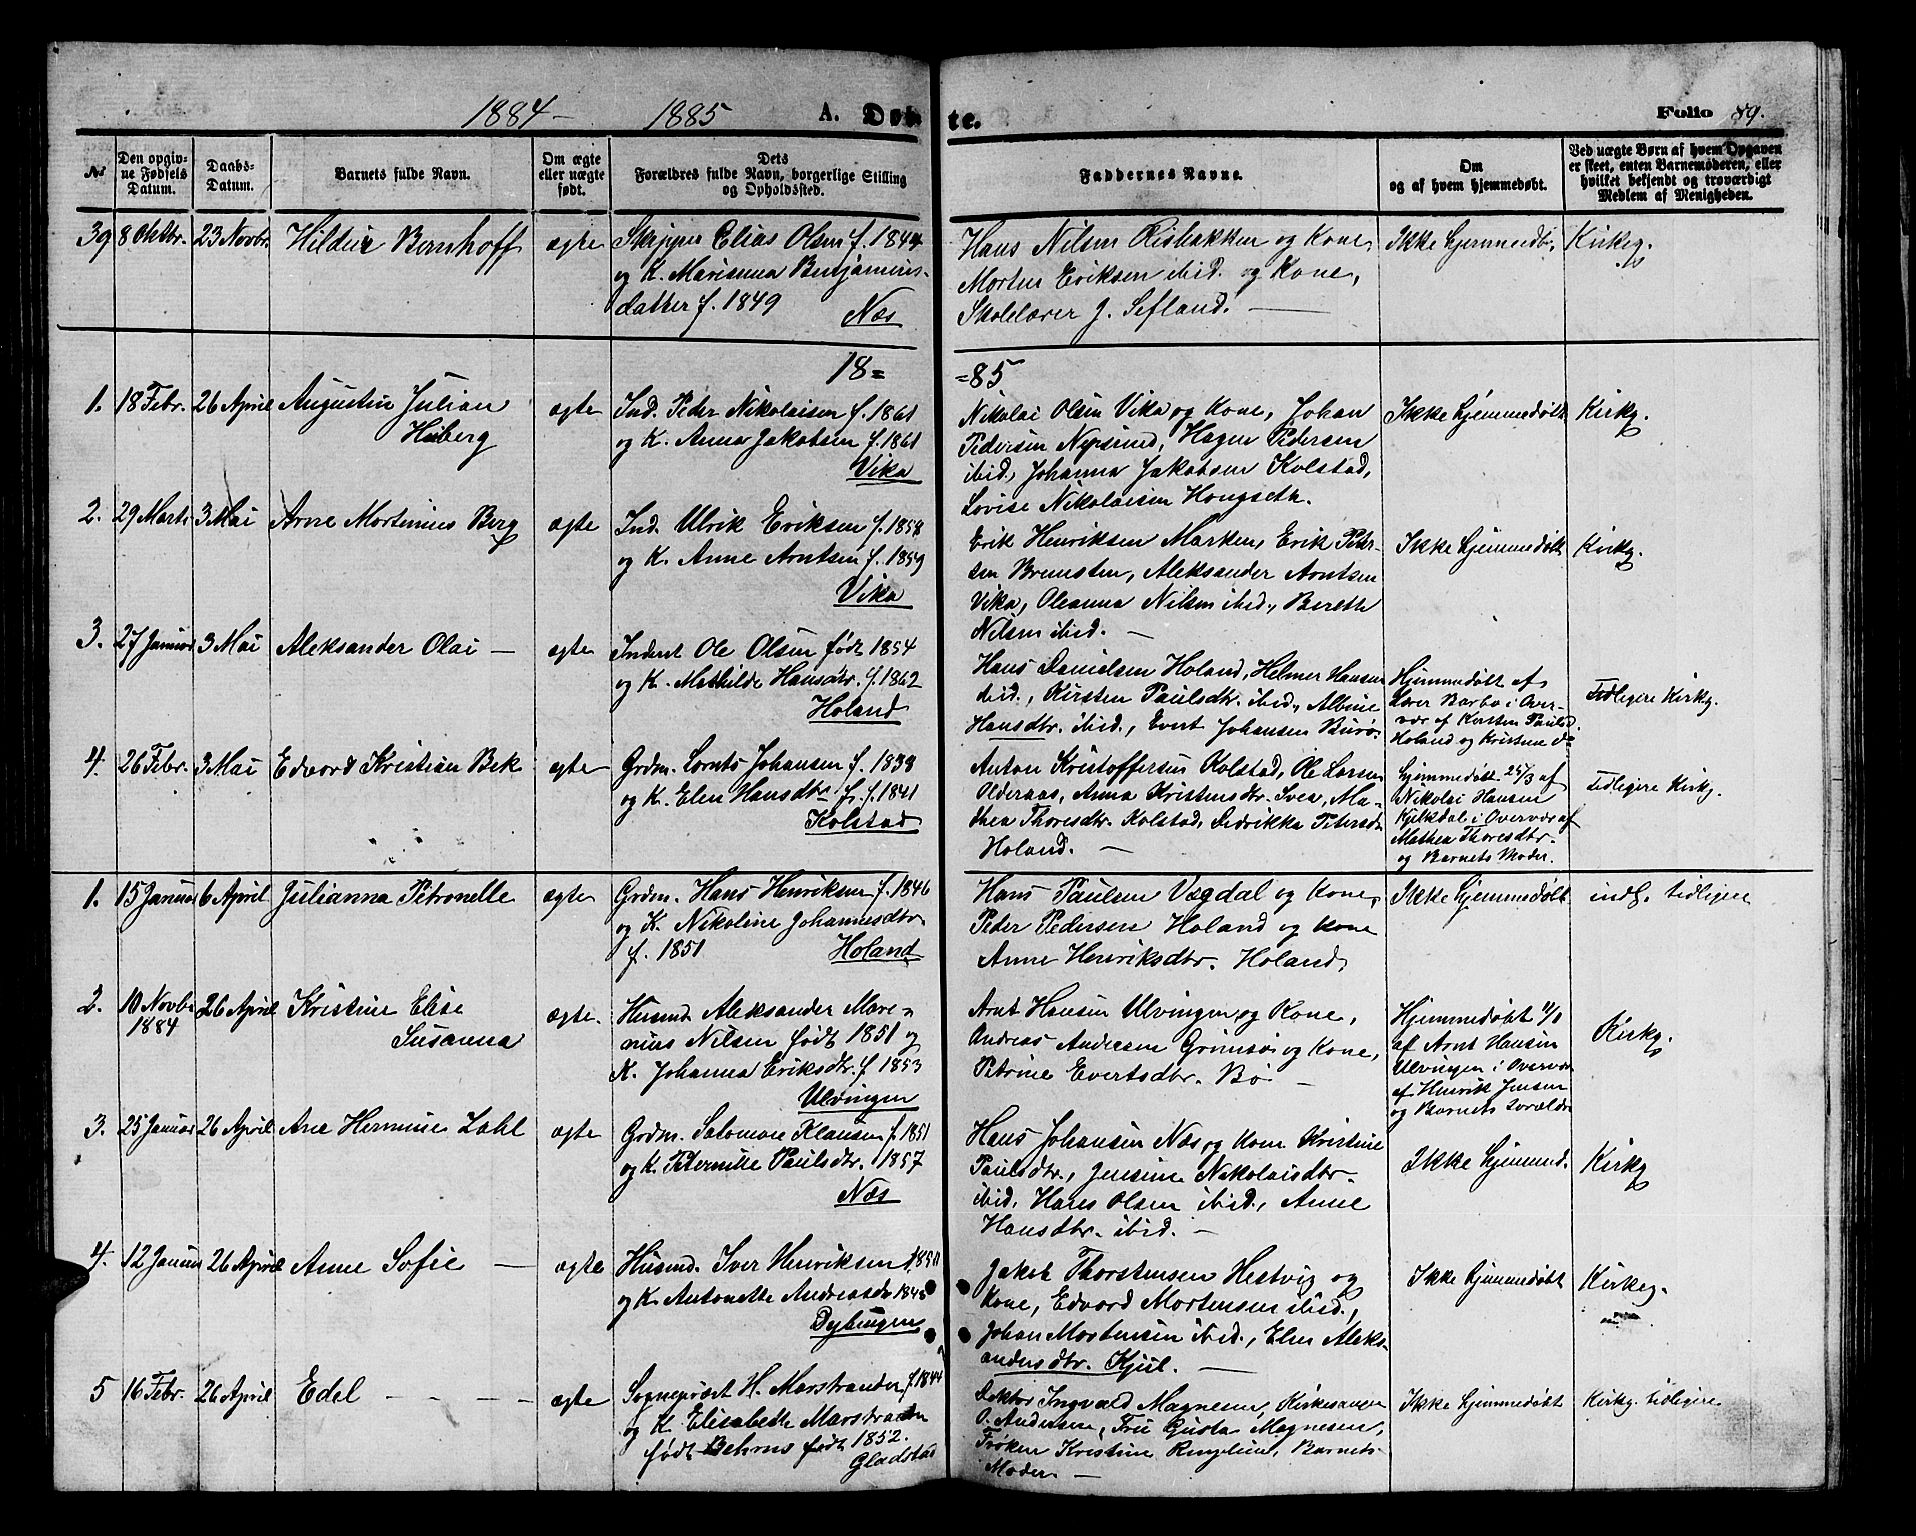 1884 - 1885 A. Døbte. Folio 89.
No
Den opgivne Fødsels Datum.
Daabs-Datum.
Barnets fulde Navn.
Om ægte eller uægte født.
Dets Forældres fulde Navn, borgerlige Stilling og Opholdssted.
Faddernes Navne.
Om og af hvem hjemmedøbt.
Ved uægte Børn af hvem Opgaven er skeet, enten Barnemoderen, eller hvilket bekjendt og troværdigt Medlem af Menigheden.
39 8 Oktbr. 23 Novbr. Hildur Bernhoff ægte
Skipper Elias Olsen f. 1844
og K. Marianna Benjamins-
datter f. 1849
Næs
Hans Nilsen Risbakken og Kone,
Morten Eriksen ibid. og Kone,
Skolelærer J. Sefland. —
Ikke hjemmedb. Kirkeg.
18= =85
1. 18 Febr. 26 April Augustin Julian
Huberg
ægte
Ind. Peder Nikolaisen f. 1861
og K. Anna Jakobsen f. 1861
Vika
Nikolai Olsen Vika og Kone, Johan
Pedersen Nepsund, Hagen Pedersen
ibid, Johanna Jakobsen Kolstad,
Lovise Nikolaisen Hongseth.
Ikke hjemmedøbt Kirkg.
2. 29 Marts 3 Mai Arne Mortinius Berg ægte
Ind. Ulrik Eriksen f. 1858
og K. Anne Arntsen f. 1859
Vika
Erik Henriksen Marken, Erik Peter-
sen Bremsten, Aleksander Arntsen
Vika, Oleanna Nilsen ibid., Bereth
Nilsen ibid. —
Ikke hjemmedøbt Kirkg.
3. 27 Januar 3 Mai Aleksander Olai — ægte
Inderst Ole Olsen født 1854
og K. Mathilde Hansdtr. f. 1862
Holand
Hans Danielsen Holand, Helmer Hansen
ibid., Kirsten Paulsdtr. ibid., Albine
Hansdtr. ibid., Evert Johansen Burø.
Hjemmedøbt af
Lærer Barbo i Over-
vær af Kirsten Paulsd.
Holand og Kristine do
Tidligere Kirkg.
4. 26 Febr. 3 Mai Edvard Kristian Bek ægte
Grdm. Lornts Johansen f. 1838
og K. Elen Hansdtr. f. 1841
Kolstad
Anton Kristoffersen Kolstad, Ole Larsen
Olderaas, Anna Kristensdtr. Svea, Ma-
thea Thoresdtr. Kolstad, Fredrikka Petersdr.
Holand. —
Hjemmedøbt 24/3 af
Nikolai Hansen
Kjelkdal i Overvær af
Mathea Thoresdtr.
og Barnets Moder.
tidligere Kirkg.
1. 15 Januar 6 April Julianna Petronelle ægte
Grdm. Hans Henriksen f. 1846
og K. Nikoline Johannesdtr.
f. 1851 Holand
Hans Paulsen Vægdal og Kone,
Peder Pedersen Holand og Kone
Anne Henriksdtr. Holand.
Ikke hjemmedøbt indg. tidligere
2. 10 Novbr. 1884 26 April Kristine Elise
Susanna
ægte.
Husmd. Aleksander Mare-
nius Nilsen født 1851 og
K. Johanna Eriksdtr. f. 1853
Ulvingen
Arnt Hansen Ulvingen og Kone,
Andreas Andersen Grimsø og Kone,
Petrine Evertsdtr. Bø —
Hjemmedøbt 11/1
af Arnt Hansen
Ulvingen i Overvær
af Henrik Jensen
og Barnets Forældre
Kirkg.
3. 25 Januar 26 April Ane Hermine Zahl ægte
Grdm. Salomon Klausen f. 1851
og K. Peternille Paulsdtr. 1857
Næs
Hans Johansen Næs og Kone Kristine
Paulsdtr., Jensine Nikolaisdtr.
ibid. Hans Olsen ibid., Anne
Hansdtr. ibid. —
Ikke hjemmed. Kirkg
4. 12 Januar 26 April Anne Sofie — ægte
Husmd. Iver Henriksen
og K. Antonette Andreasdr 1845
Dybingen
Jakob Thorstensen Hestvig og
Kone, Edvard Mortensen ibid.,
Johan Mortensen ibid., Elen Aleks-
andersdtr. Kjul. —
Ikke hjemmedøbt Kirkeg.
5 16 Febr. 26 April Edel - - - ægte
Sogneprest H. Marstrander f. 1844
og K. Elisabeth Marstrander
født Behrns født 1852.
Gladstad
Doktor Ingvald Magnesen, Kirkesanger
O. Andersen, Fru Gusta Magnesen,
Frøken Kristine Ringlien, Barnets
Moder. —
Ikke hjemmedøbt Kirkg. tidligere